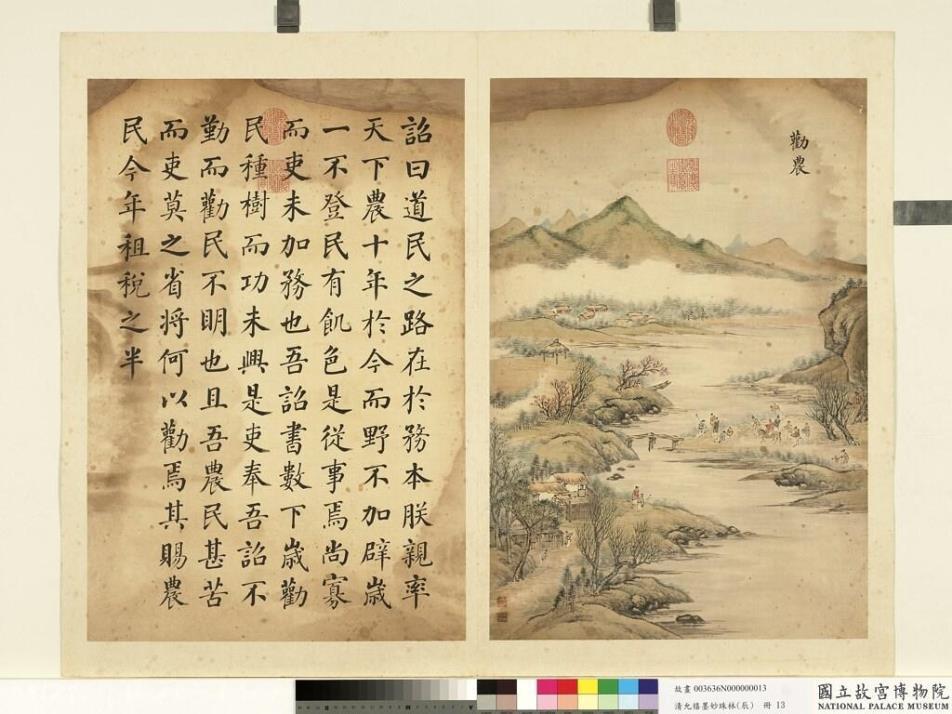 勸農
詔曰道民之路在於務本朕親率
天下農十年於今而野不加辟歲
一不登民有飢色是從事焉尚寡
而吏未加務也吾詔書數下歲勸
民種樹而功未興是吏奉吾詔不
勤而勸民不明也且吾農民甚苦
而吏莫之省將何以勸焉其賜農
民今年租稅之半
故畫 003636N000000013
清允禧墨妙珠林(辰) 冊 13
國立故宮博物院
NATIONAL PALACE MUSEUM